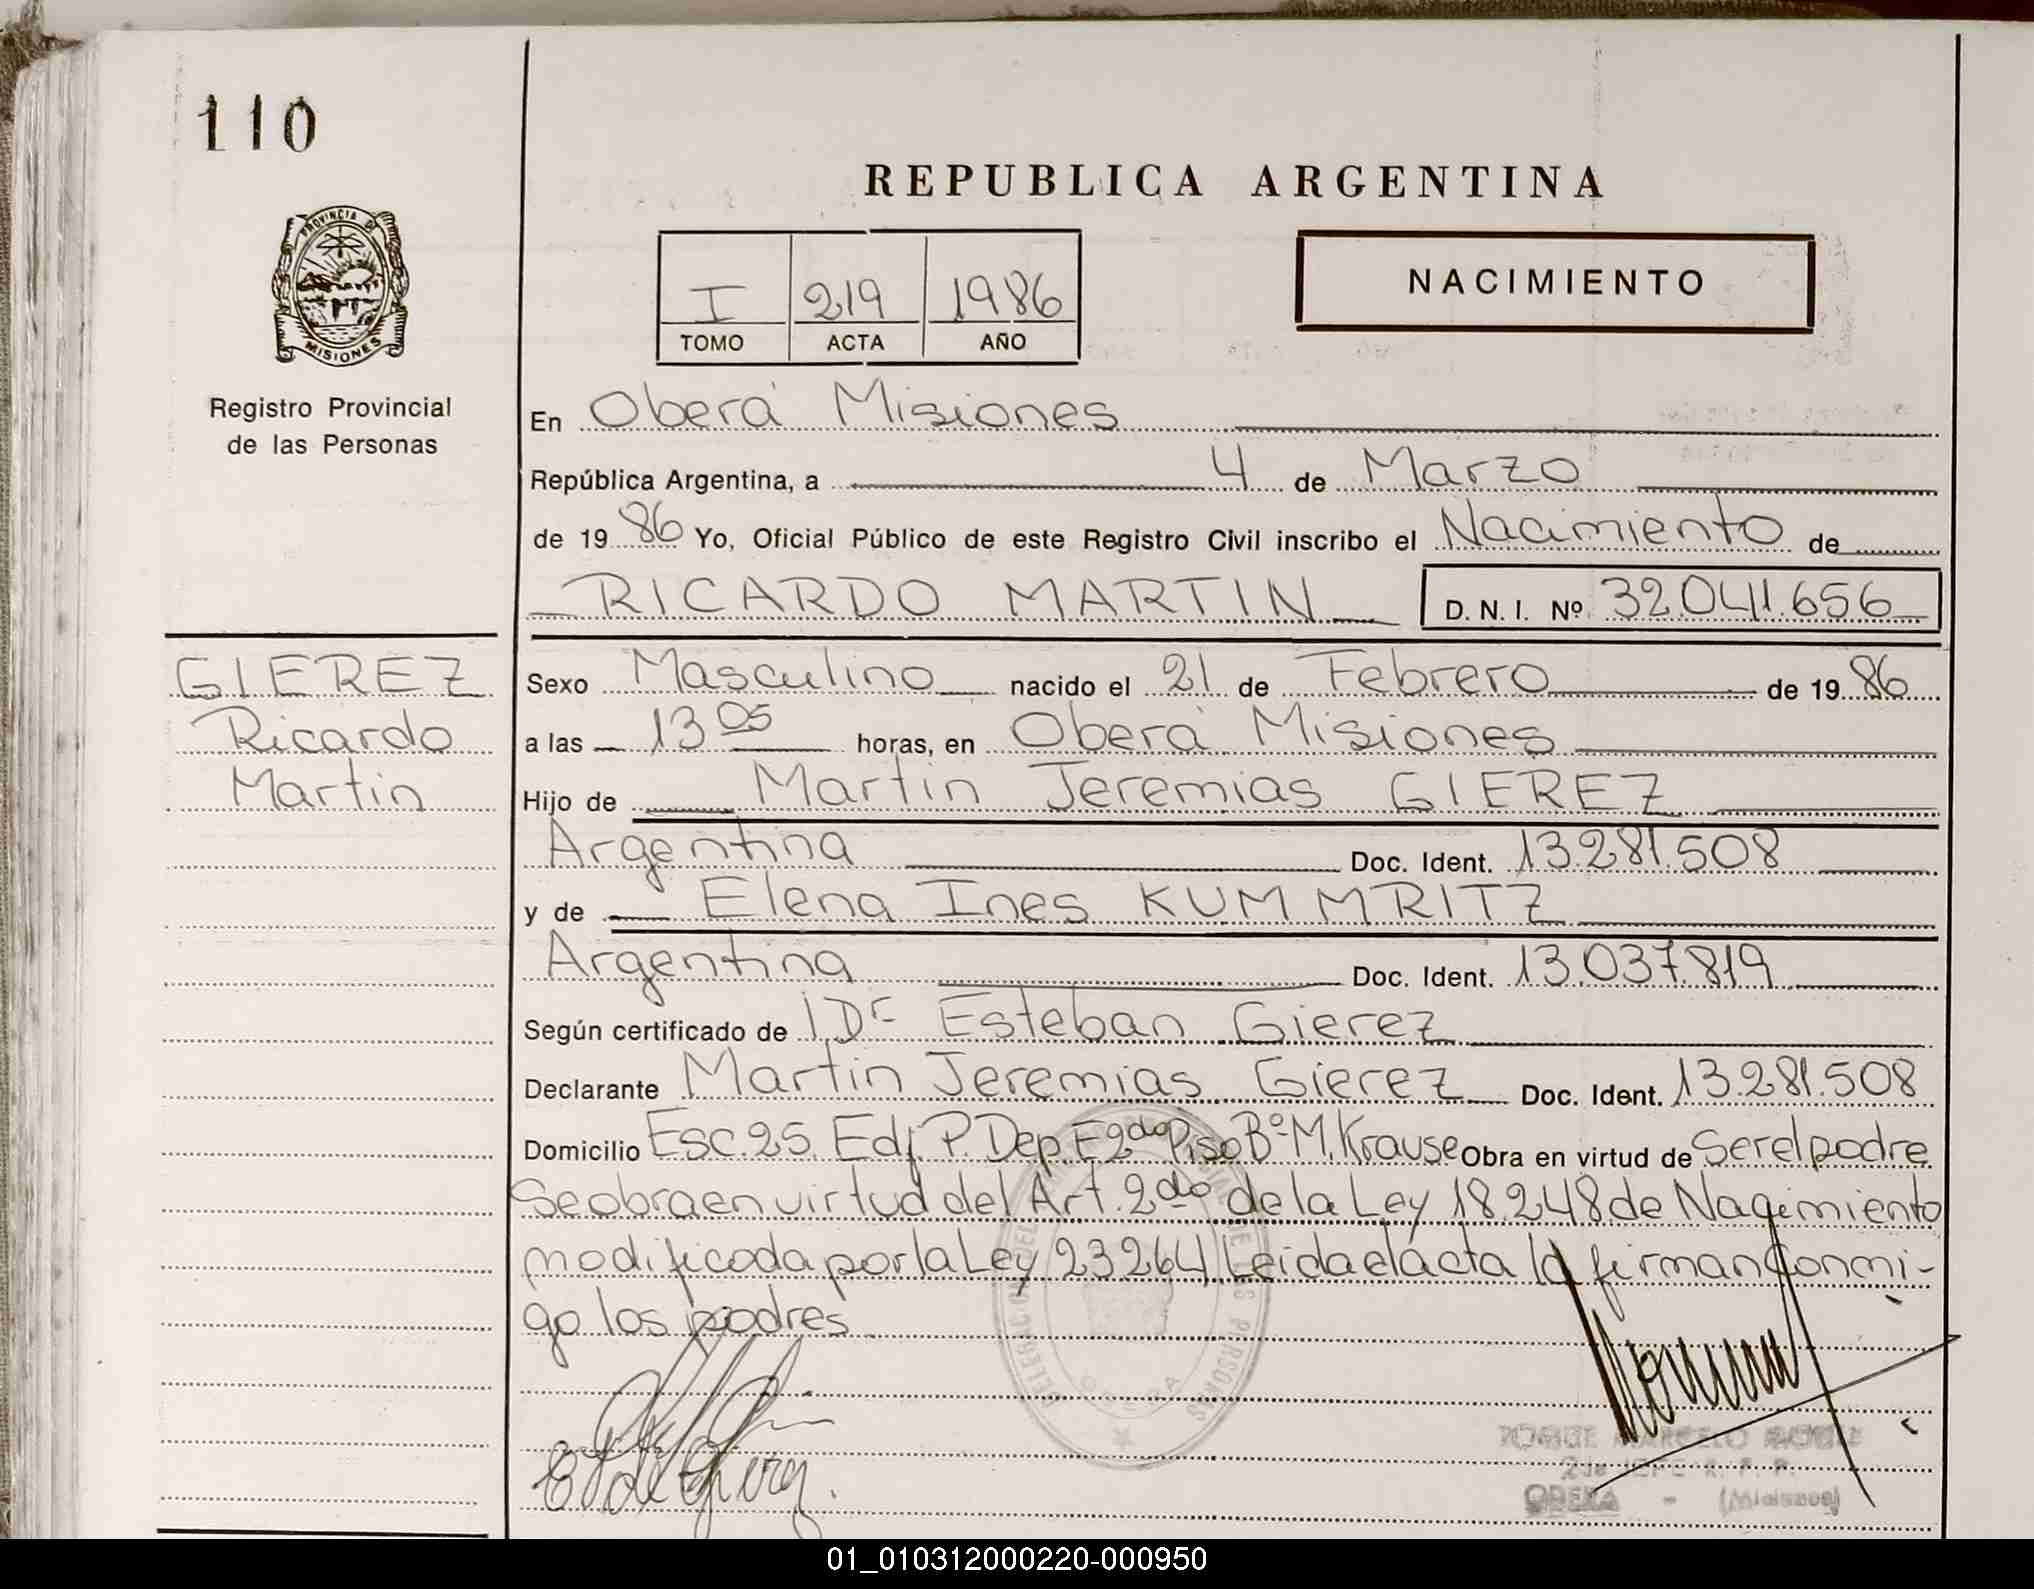 110
REPUBLICA ARGENTINA
PROVINCIA DE
MISIONES
I 219 1986
TOMO ACTA AÑO
NACIMIENTO
Registro Provincial
de las Personas
En Oberá Misiones
República Argentina, a 4 de Marzo
de 1986 Yo, Oficial Público de este Registro Civil inscribo el Nacimiento de
RICARDO MARTIN D. N. I. Nº 32.041.656
GIEREZ
Ricardo
Martin
Sexo Masculino nacido el 21 de Febrero de 1986
a las 13 05 horas, en Oberá Misiones
Hijo de Martin Jeremias GIEREZ
Argentina Doc. Ident. 13.281.508
y de Elena Ines KUMMRITZ
Argentina Doc. Ident. 13.037.819
Según certificado de Dr Esteban Gierez
Declarante Martin Jeremias Gierez Doc. Ident. 13.281.508
Domicilio Esc. 25. Edf. P. Dep. E 2do Piso Bº M. Krause Obra en virtud de Ser el padre
Se obra en virtud del Art. 2do de la Ley 18.248 de Nacimiento
modificada por la Ley 23264 Leida el acta la firman conmi-
go los padres
DELEGACION DEL PERSONAS
MARCELO
2do JEFE R. P. P.
OBERA - (Misiones)
01_010312000220-000950